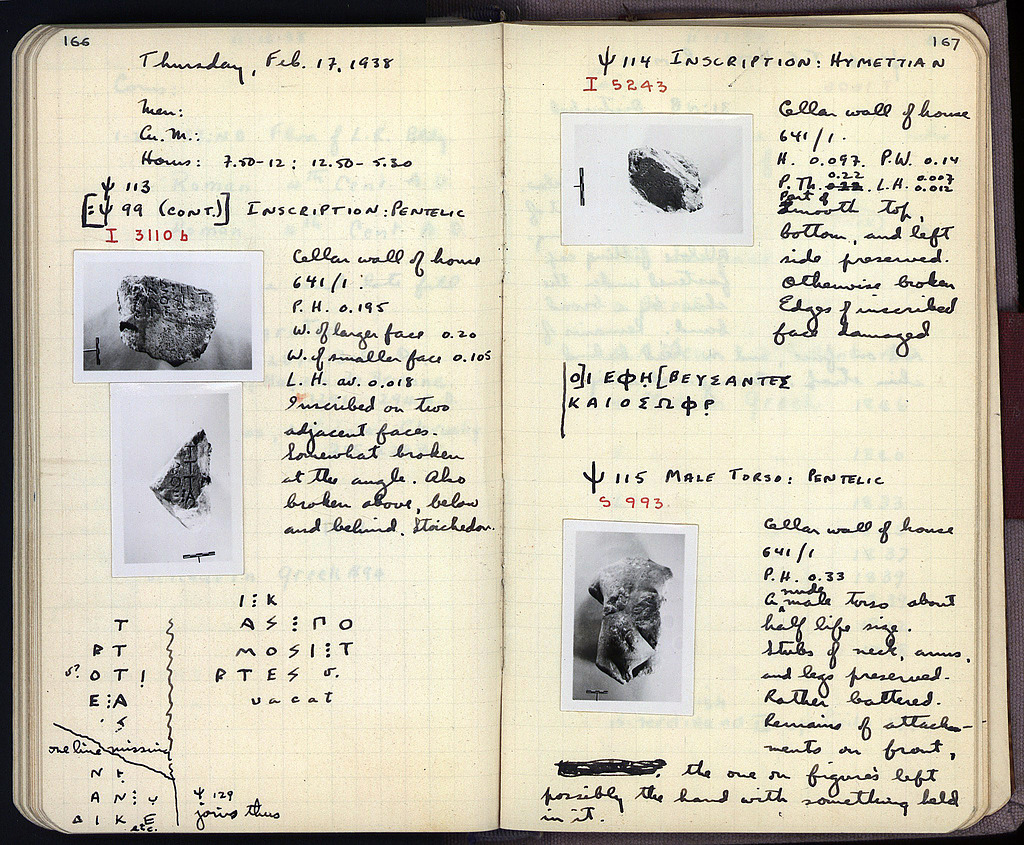 166
Thursday, Feb. 17, 1938
Men:
Cu. M.:
Hours: 7.50-12 ; 12.50-5.30
ψ 113
[: ψ 99 (CONT.)] INSCRIPTION: PENTELIC
I 3110 b
Cellar wall of house
641/1.
P. H. 0.195
W. of larger face 0.20
W. of smaller face 0.105
L. H. av. 0.018
Inscribed on two
adjacent faces.
Somewhat broken
at the angle. Also
broken above, below
and behind. Stoichedon.
I ⋮ K
A S ⋮ Π O
M O S I ⋮ T
P T E S σ.
v a c a t
T
P T
σ? O T I
E ⋮ A
S
one line missing
N
A N ⋮
Δ I K E
etc.
ψ 129
joins thus
167
ψ 114 INSCRIPTION: HYMETTIAN
I 5243
Cellar wall of house
641/1.
H. 0.097. P.W. 0.14
P. Th. 0.22 L.H. 0.007
0.012
Part of
smooth top,
bottom, and left
side preserved.
Otherwise broken
Edges of inscribed
face damaged
Ο]Ι ΕΦΗ[ΒΕΥΣΑΝΤΕΣ
ΚΑΙΟΣΩΦΡ
ψ 115 MALE TORSO: PENTELIC
S 993.
Cellar wall of house
641/1
P. H. 0.33
A nude male torso about
half life size.
Stubs of neck, arms,
and legs preserved.
Rather battered.
Remains of attach-
ments on front,
the one on figure's left
possibly the hand with something held
in it.